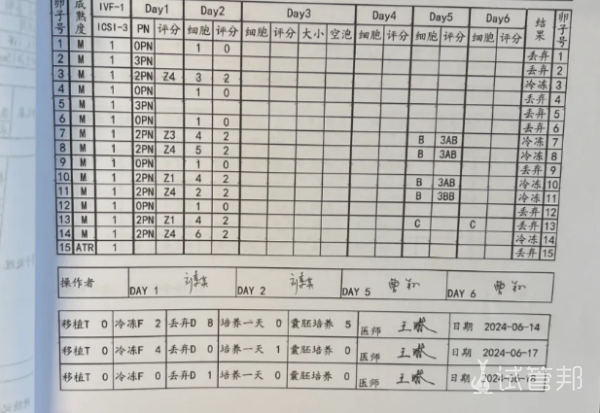 卵子号 成熟度 IVF-1 Day1 Day2 Day3 Day4 Day5 Day6 结果 卵子号
ICSI-3 PN 评分 细胞 评分 细胞 评分 大小 空泡 细胞 评分 细胞 评分 细胞 评分
1 M 1 0PN 1 0 丢弃 1
2 M 1 3PN 丢弃 2
3 M 1 2PN Z4 3 2 冷冻 3
4 M 1 0PN 1 0 丢弃 4
5 M 1 3PN 丢弃 5
6 M 1 0PN 1 0 丢弃 6
7 M 1 2PN Z3 4 2 B 3AB 冷冻 7
8 M 1 2PN Z4 5 2 B 3AB 冷冻 8
9 M 1 0PN 1 0 丢弃 9
10 M 1 2PN Z1 4 2 B 3AB 冷冻 10
11 M 1 2PN Z4 2 2 B 3BB 冷冻 11
12 M 1 0PN 1 0 丢弃 12
13 M 1 2PN Z1 4 2 C C 丢弃 13
14 M 1 2PN Z4 6 2 冷冻 14
15 ATR 1 丢弃 15
操作者 DAY 1 DAY 2 DAY 5 DAY 6
移植T 0 冷冻F 2 丢弃D 8 培养一天 0 囊胚培养 5 医师 日期 2024-06-14
移植T 0 冷冻F 4 丢弃D 0 培养一天 1 囊胚培养 0 医师 日期 2024-06-17
移植T 0 冷冻F 0 丢弃D 1 培养一天 0 囊胚培养 0 医师 日期 2024-06-18
试管邦